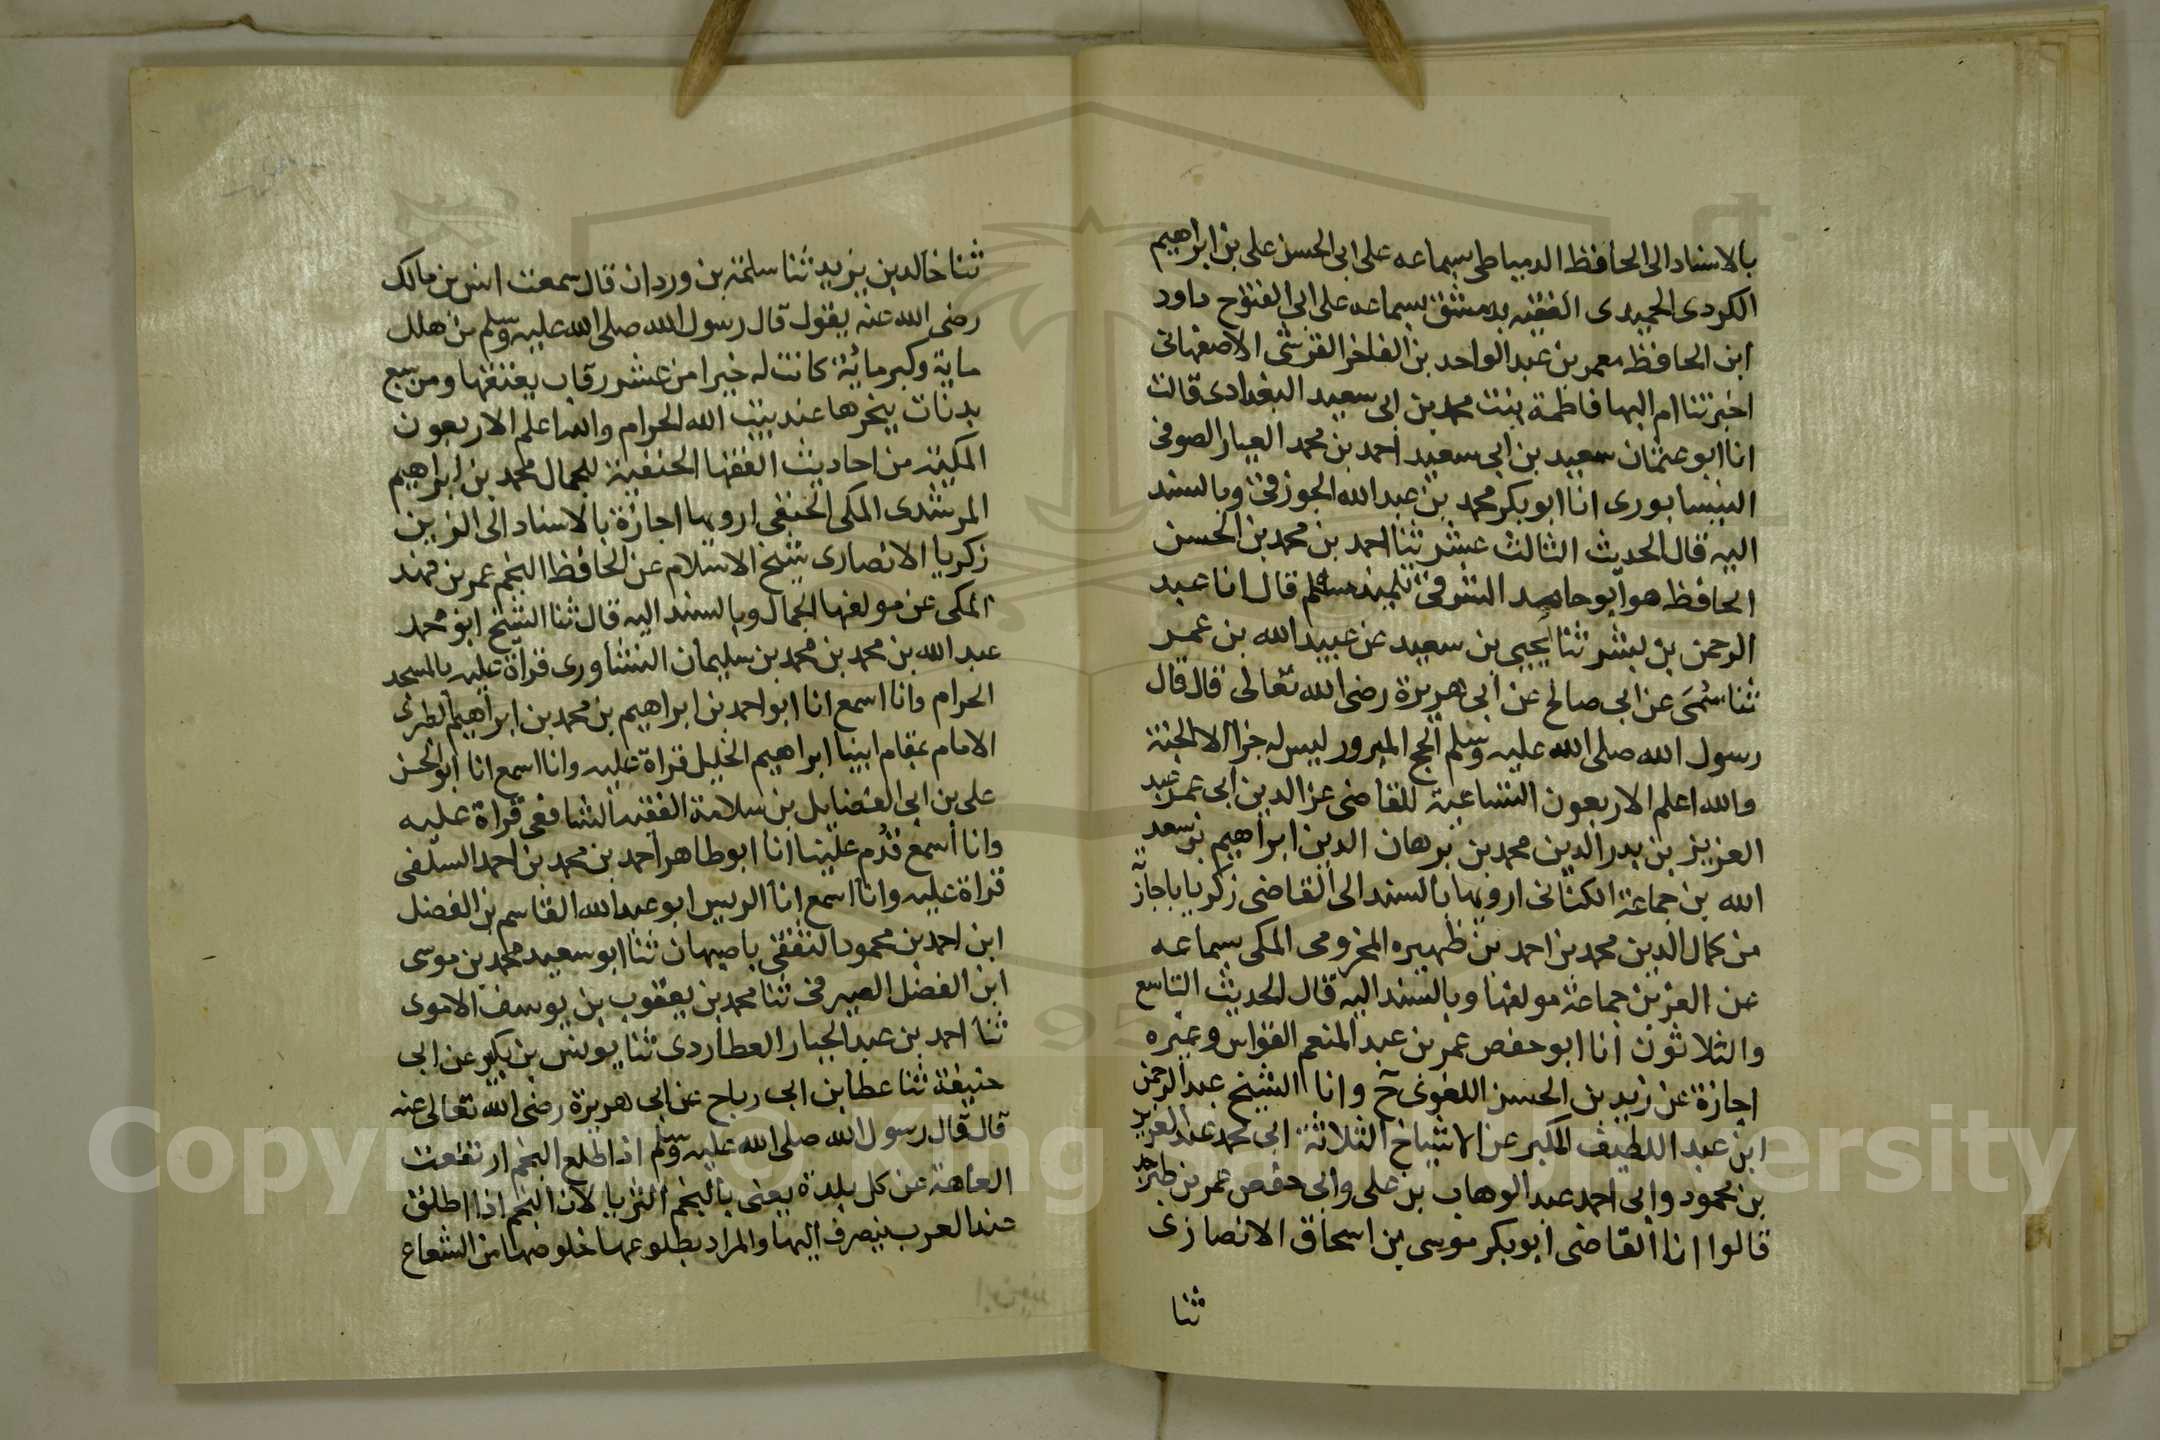 بالاسناد الى الحافظ الدمياطى بسماعه على ابى الحسن على بن ابراهيم
الكردى الحميدى الفقيه بدمشق بسماعه على ابى الفتوح داود
ابن الحافظ معمر بن عبد الواحد بن الفاخر القرشى الاصفهانى
اخبرتنا ام البها فاطمة بنت محمد بن ابى سعيد البغدادى قالت
انا ابو عثمان سعيد بن ابى سعيد احمد بن محمد العيار الصوفى
النيسابورى انا ابو بكر محمد بن عبد الله الجوزقى وبالسند
اليه قال الحديث الثالث عشر ثنا احمد بن محمد بن الحسن
الحافظ هو ابو حامد الشرقى تلميذ مسلم قال انا عبد
الرحمن بن بشر ثنا يحيى بن سعيد عن عبيد الله بن عمر
ثنا سُمَى عن ابى صالح عن ابى هريرة رضى الله تعالى قال قال
رسول الله صلى الله عليه وسلم الحج المبرور ليس له جزا الا الجنة
والله اعلم الاربعون التساعية للقاضى عز الدين ابى عمر عبد
العزيز بن بدر الدين محمد بن برهان الدين ابراهيم بن سعد
الله بن جماعة الكنانى ارويها بالسند الى القاضى زكريا باجازة
من كمال الدين محمد بن احمد بن ظهيره المخزومى المكى بسماعه
عن العز بن جماعة مولفها وبالسند اليه قال الحديث التاسع
والثلاثون انا ابو حفص عمر بن عبد المنعم القواس وغيره
اجازة عن زيد بن الحسن اللغوى ح وانا الشيخ عبد الرحمن
ابن عبد اللطيف المكبر عن الاشياخ الثلاثة ابى محمد عبد العزيز
بن محمود وابى احمد عبد الوهاب بن على وابى حفص عمر بن طبرزد
قالوا انا القاضى ابو بكر موسى بن اسحاق الانصارى
ثنا
ثنا خالد بن يزيد ثنا سلمة بن وردان قال سمعت انس بن مالك
رضى الله عنه يقول قال رسول الله صلى الله عليه وسلم من هلل
ماية وكبر مائة كانت له خيرا من عشر رقاب يعتقها ومن سبع
بدنات ينحرها عند بيت الله الحرام والله اعلم الاربعون
المكية من احاديث الفقها الحنفية للجمال محمد بن ابراهيم
المرشدى المكى الحنفى ارويها اجازة بالاسناد الى الزين
زكريا الانصارى شيخ الاسلام عن الحافظ النجم عمر بن فهد
المكى عن مولفها الجمال وبالسند اليه قال ثنا الشيخ ابو محمد
عبد الله بن محمد بن محمد بن سليمان النشاورى قراة عليه بالمسجد
الحرام وانا اسمع انا ابو احمد بن ابراهيم بن محمد بن ابراهيم الطبرى
الامام بمقام ابينا ابراهيم الخليل قراة عليه وانا اسمع انا ابو الحسن
على بن ابى الفضايل بن سلامة الفقيه الشافعى قراة عليه
وانا اسمع قدُم علينا انا ابو طاهر احمد بن محمد بن احمد السلفى
قراة عليه وانا اسمع انا الريس ابو عبد الله القاسم بن الفضل
ابن احمد بن محمود الثقفى باصبهان ثنا ابو سعيد محمد بن موسى
ابن الفضل الصيرفى ثنا محمد بن يعقوب بن يوسف الاموى
ثنا احمد بن عبد الجبار العطاردى ثنا يونس بن بكير عن ابى
حنيفة ثنا عطا بن ابى رباح عن ابى هريرة رضى الله تعالى عنه
قال قال رسول الله صلى الله عليه وسلم اذا طلع النجم ارتفعت
العاهة عن كل بلدة يعنى بالنجم الثريا لان النجم اذا اطلق
عند العرب ينصرف اليها والمراد بطلوعها خلوصها من الشعاع
Copyright © King Saud University